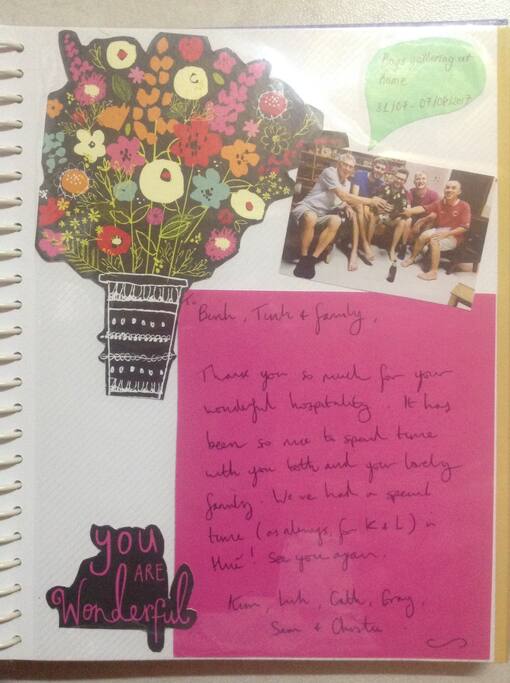 Boys gathering at
home
31/07 - 07/08/2017
To
Binh, Tinh & family,
Thank you so much for your
wonderful hospitality. It has
been so nice to spend time
with you both and your lovely
family. We've had a special
time (as always, for K & L) in
Hué! See you again.
Kim, Linh, Cath, Gray,
Sean & Christie
you
ARE
Wonderful